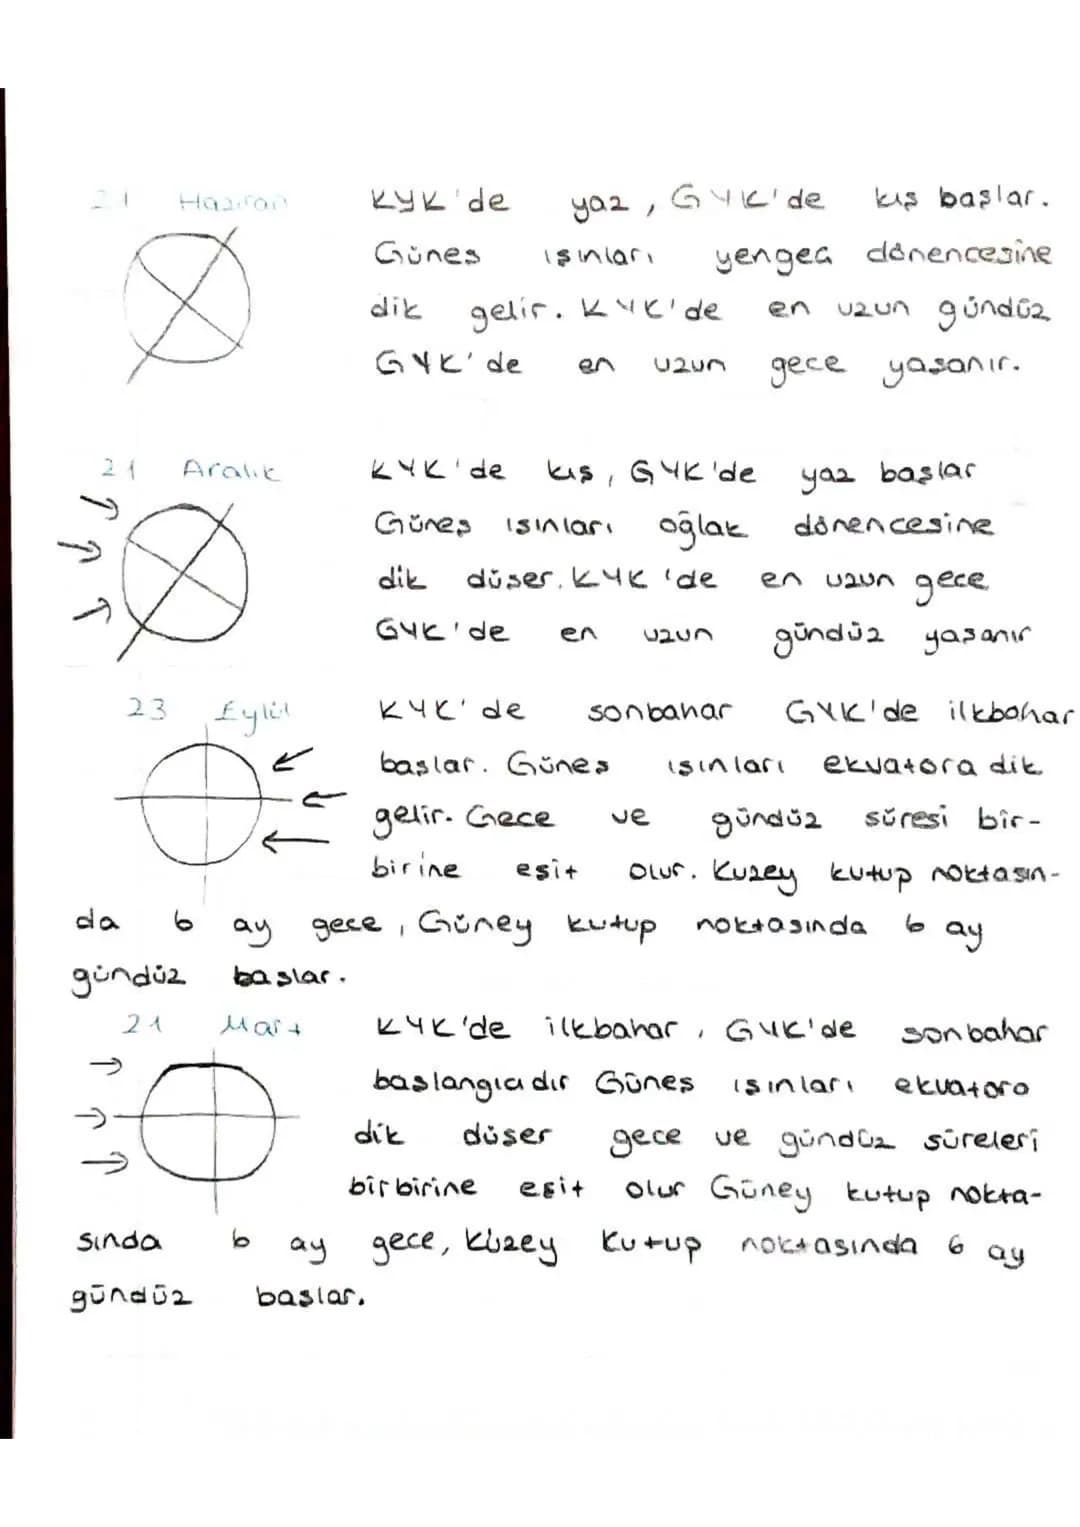 21 Haziran
KYK'de yaz, GYK'de kış başlar.
Günes ışınları yengeç dönencesine
dik gelir. KYK'de en uzun gündüz
GYK'de en uzun gece yasanır.
21 Aralık
KYK'de kıs, GYK'de yaz baslar
Günes ısınları oğlak dönencesine
dik düser. KYK'de en uzun gece
GYK'de en uzun gündüz yasanır
23 Eylül
KYK'de sonbahar GYK'de ilkbahar
baslar. Günes ısınları ekvatora dik
gelir. Gece ve gündüz süresi bir-
birine esit olur. Kuzey kutup noktasın-
da 6 ay gece, Güney kutup noktasında 6 ay
gündüz baslar.
21 Mart
KYK'de ilkbahar, GYK'de sonbahar
baslangıcıdır Günes ısınları ekvatora
dik düser gece ve gündüz süreleri
birbirine esit olur Güney kutup nokta-
sında 6 ay gece, Kuzey Kutup noktasında 6 ay
gündüz baslar.